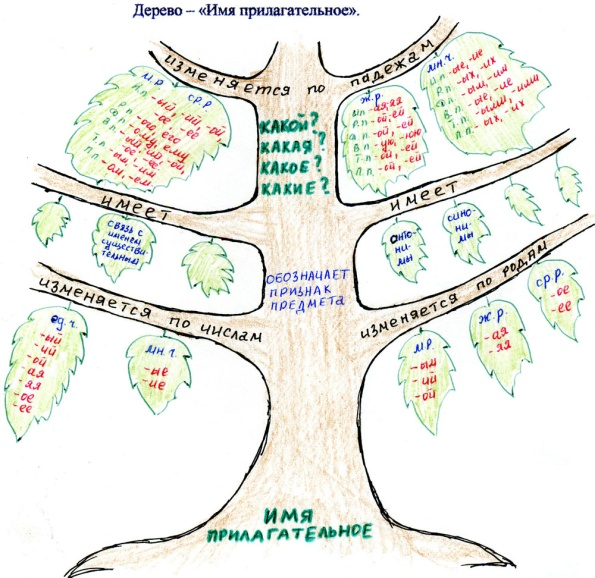 Дерево – «Имя прилагательное».
изменяется по падежам
м.р. ср.р
И.п. -ый, -ий, -ой,
-ое -ее
Р.п. -ого, его
Д.п. -ому, ему
В.п. -ый -ий -ой,
-ое -ее
Т.п. -ым -им
П.п. -ом, -ем.
КАКОЙ?
КАКАЯ?
КАКОЕ?
КАКИЕ?
ж.р.
И.п. -ая, -яя
Р.п. -ой, -ей
Д.п. -ой, -ей
В.п. -ую, -юю
Т.п. -ой, -ей
П.п. -ой, -ей
мн.ч.
И.п. -ые, -ие
Р.п. -ых, -их
Д.п. -ым, -им
В.п. -ые, -ие
Т.п. -ыми, -ими
П.п. -ых, -их
имеет
связь с
именем
существи-
тельным
имеет
анто-
ни-
мы
сино-
ни-
мы
ОБОЗНАЧАЕТ
ПРИЗНАК
ПРЕДМЕТА
изменяется по числам
ед.ч.
-ый
-ий
-ой
-ая
-яя
-ое
-ее
мн.ч.
-ые
-ие
изменяется по родам
м.р.
-ый
-ий
-ой
ж.р.
-ая
-яя
ср.р.
-ое
-ее
ИМЯ
ПРИЛАГАТЕЛЬНОЕ